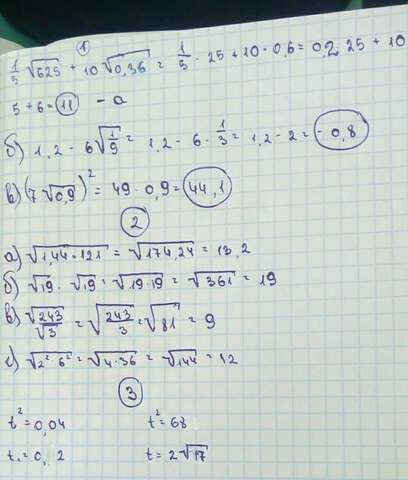 ①
1/5 √625 + 10 √0,36 = 1/5 · 25 + 10 · 0,6 = 0,2 · 25 + 10
5 + 6 = 11 - а
б) 1,2 - 6 √1/9 = 1,2 - 6 · 1/3 = 1,2 - 2 = - 0,8
в) (7 √0,9)² = 49 · 0,9 = 44,1
②
а) √1,44 · 121 = √174,24 = 13,2
б) √19 · √19 = √19·19 = √361 = 19
в) √243/√3 = √243/3 = √81 = 9
г) √2² · 6² = √4·36 = √144 = 12
③
t² = 0,04 t² = 68
t. = 0, 2 t = 2√17